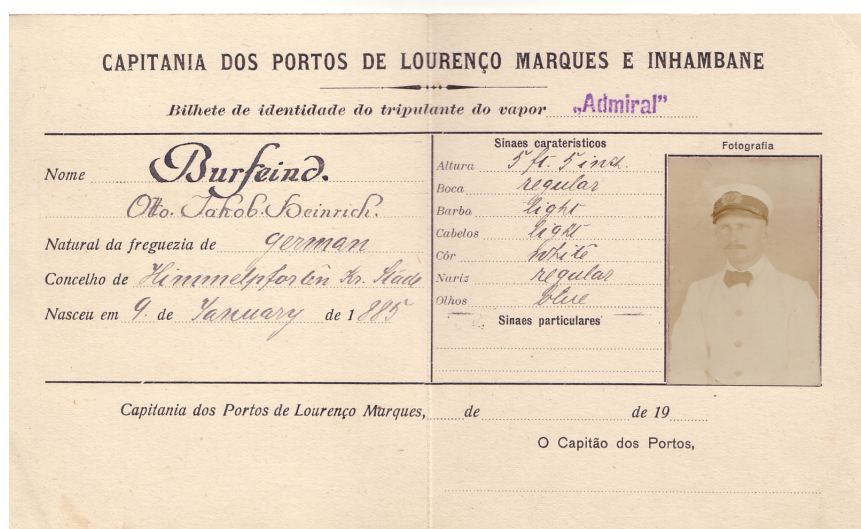 CAPITANIA DOS PORTOS DE LOURENÇO MARQUES E INHAMBANE
Bilhete de identidade do tripulante do vapor „Admiral”
Nome Burfeind.
Otto. Jakob. Heinrich.
Natural da freguezia de german
Concelho de Himmelpforten Kr. Stade
Nasceu em 9. de January de 1885
Sinaes carateristicos
Altura 5 ft. 5 inch.
Boca regular
Barba light
Cabelos light
Côr white
Nariz regular
Olhos blue
Sinaes particulares
Fotografia
Capitania dos Portos de Lourenço Marques, de de 19
O Capitão dos Portos,